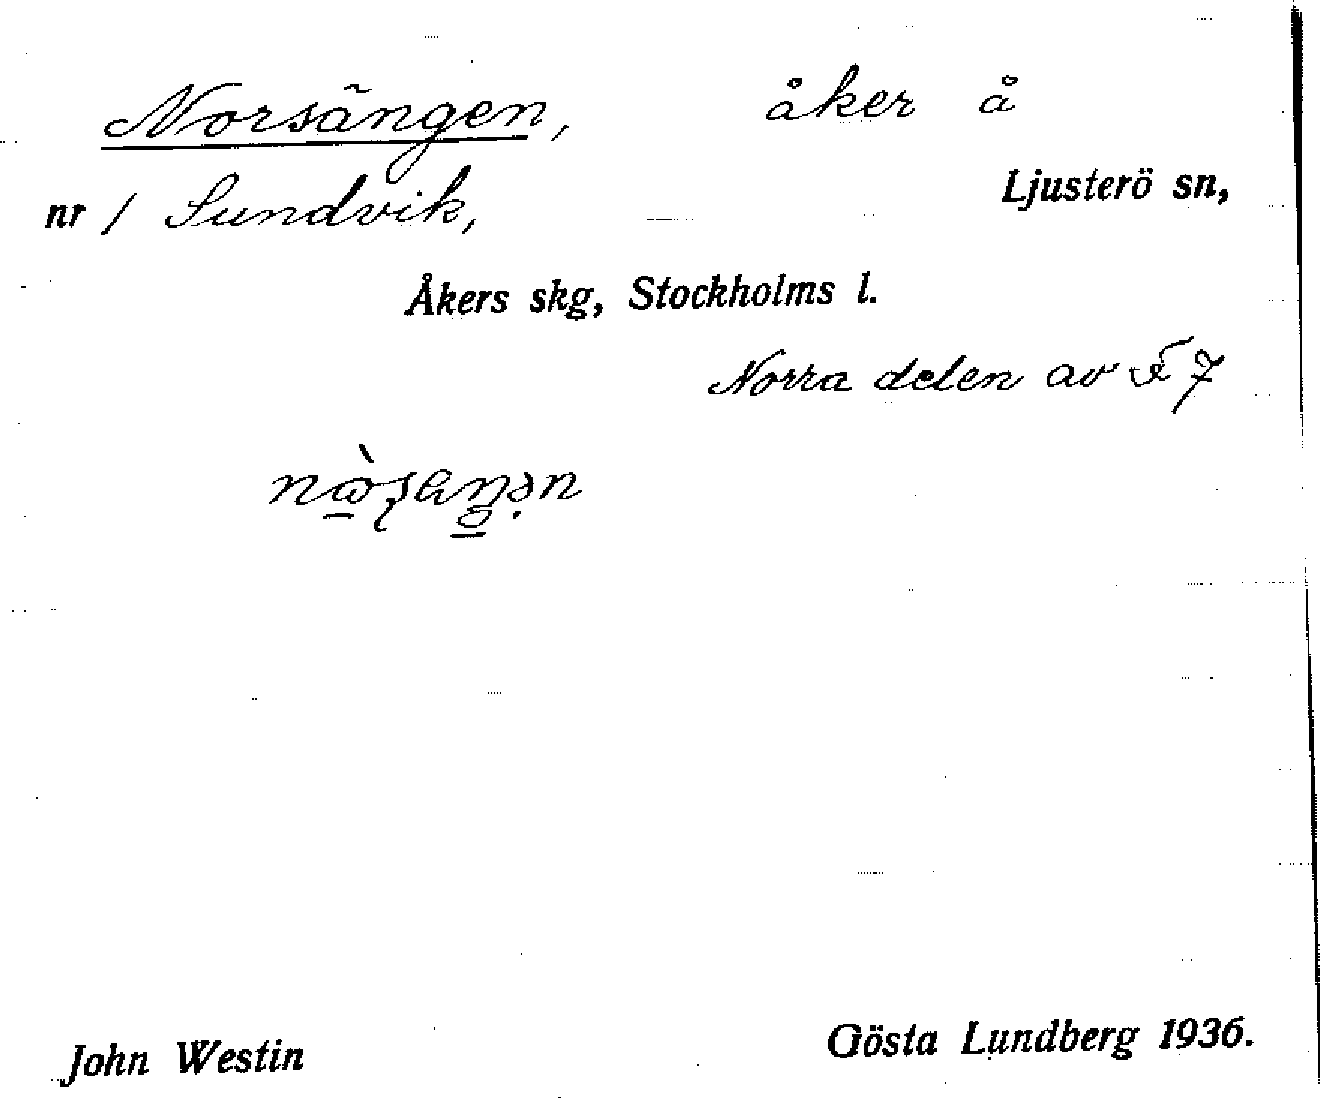 Norsängen, åker å
nr 1 Sundvik, Ljusterö sn,
Åkers skg, Stockholms l.
Norra delen av 7
John Westin Gösta Lundberg 1936.